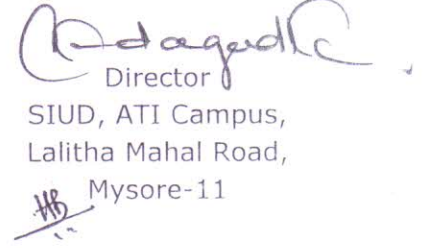 Director
SIUD, ATI Campus,
Lalitha Mahal Road,
Mysore-11
HB